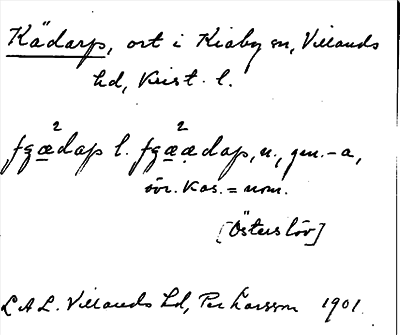 Kädarp, ort i Kiaby sn, Villands
hd, Krist. l.
2 2
fgædap l. fgææ̣dap, n., gen. -a,
övr. kas. = nom.
[Österslöv]
L.A.L. Villands hd, Per Larsson 1901.